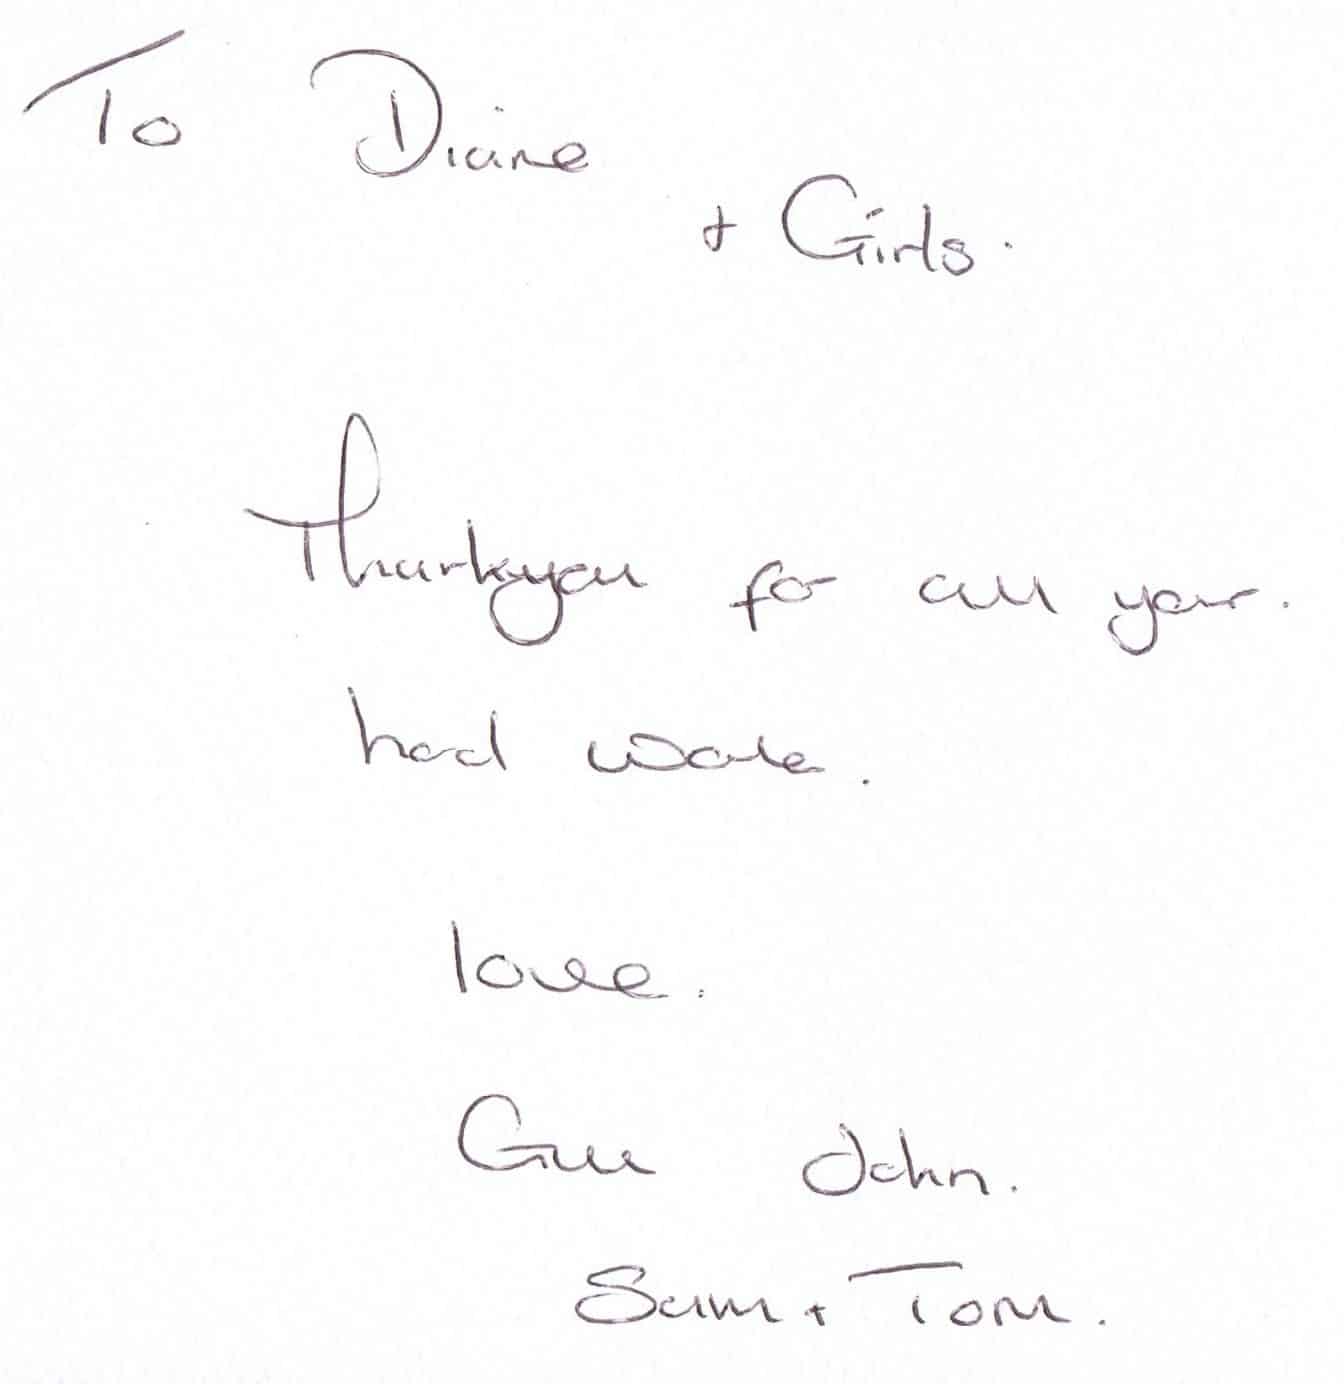 To Diane
+ Girls.
Thankyou for all your.
hard work.
love.
John.
Sam + Tom.